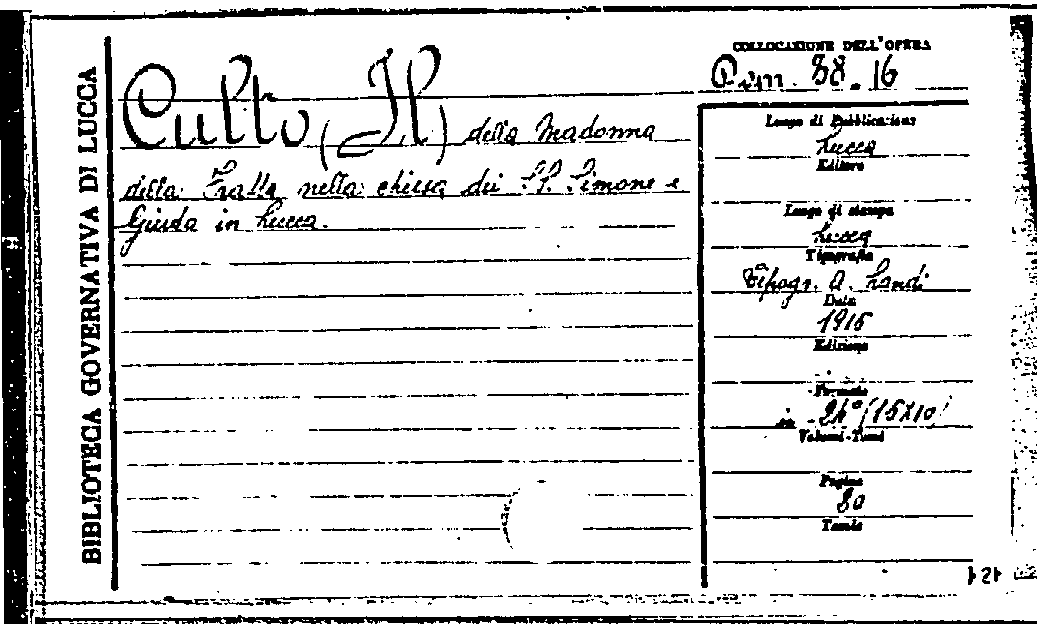 BIBLIOTECA GOVERNATIVA DI LUCCA
Culto (Il) della Madonna
della nella chiesa dei SS. Simone e
Giuda in Lucca.
COLLOCAZIONE DELL'OPERA
88.16
Luogo di Pubblicazione
Lucca
Editore
Luogo di stampa
Lucca
Tipografia
Tipogr. A. Landi
Data
1915
Edizione
Formato
in -24° (15x10)
Volumi-Tomi
Pagine
80
Tavole